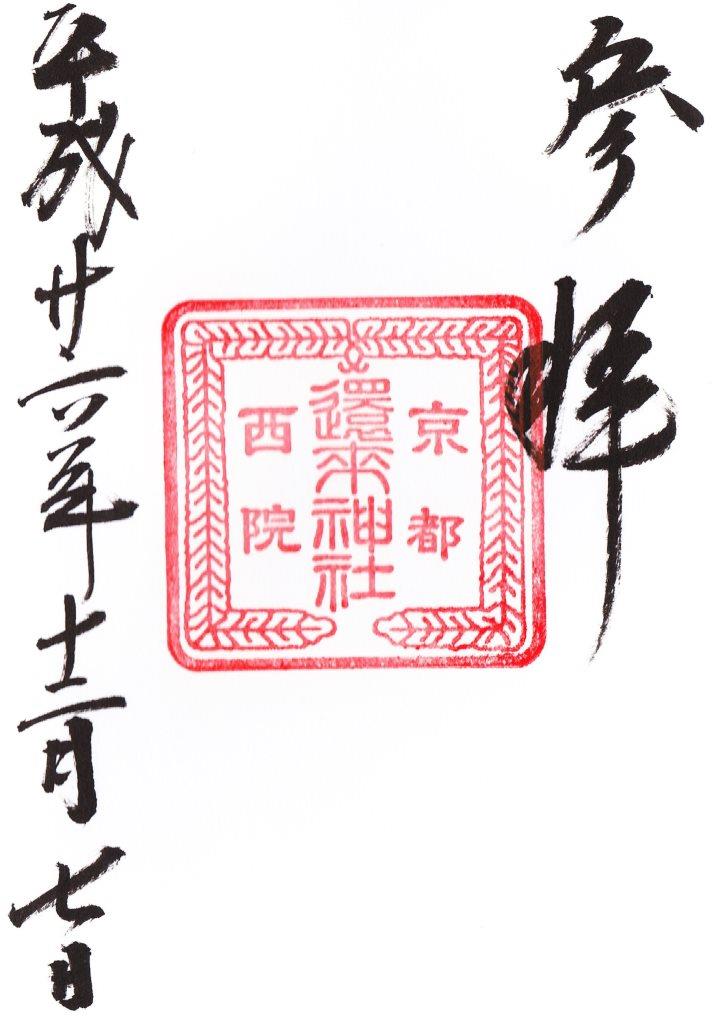 参拝
京都
還来神社
西院
平成廿六年十二月七日